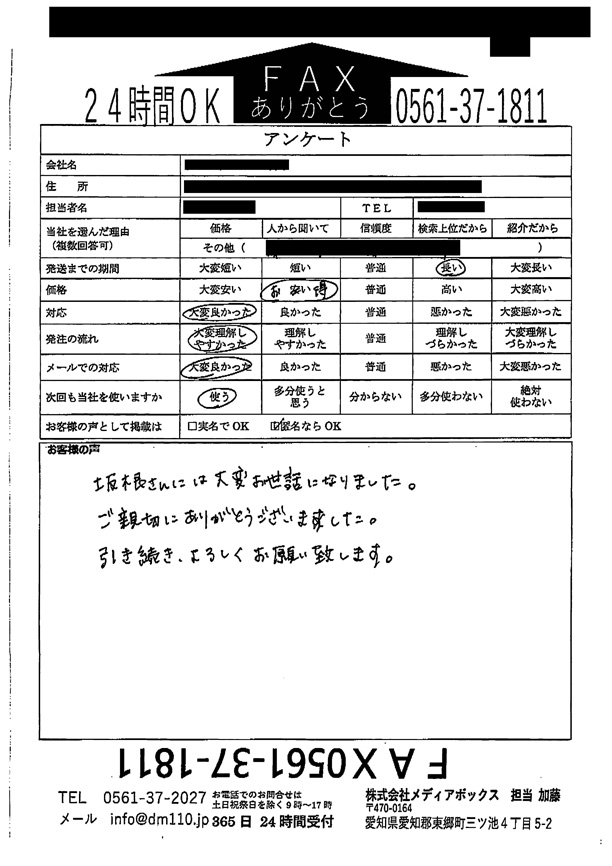 FAX
ありがとう
24時間OK
0561-37-1811
アンケート
会社名
住 所
担当者名 TEL
当社を選んだ理由 (複数回答可) 価格 人から聞いて 信頼度 検索上位だから 紹介だから
その他( )
発送までの期間 大変短い 短い 普通 長い 大変長い
価格 大変安い お安い得 普通 高い 大変高い
対応 大変良かった 良かった 普通 悪かった 大変悪かった
発注の流れ 大変理解しやすかった 理解しやすかった 普通 理解しづらかった 大変理解しづらかった
メールでの対応 大変良かった 良かった 普通 悪かった 大変悪かった
次回も当社を使いますか 使う 多分使うと思う 分からない 多分使わない 絶対使わない
お客様の声として掲載は □実名でOK ☑匿名ならOK
お客様の声
坂根さんには大変お世話になりました。
ご親切にありがとうございました。
引き続き、よろしくお願い致します。
FAX0561-37-1811
TEL 0561-37-2027 お電話でのお問合せは
土日祝祭日を除く9時〜17時
メール info@dm110.jp 365日24時間受付
株式会社メディアボックス 担当 加藤
〒470-0164
愛知県愛知郡東郷町三ツ池4丁目5-2